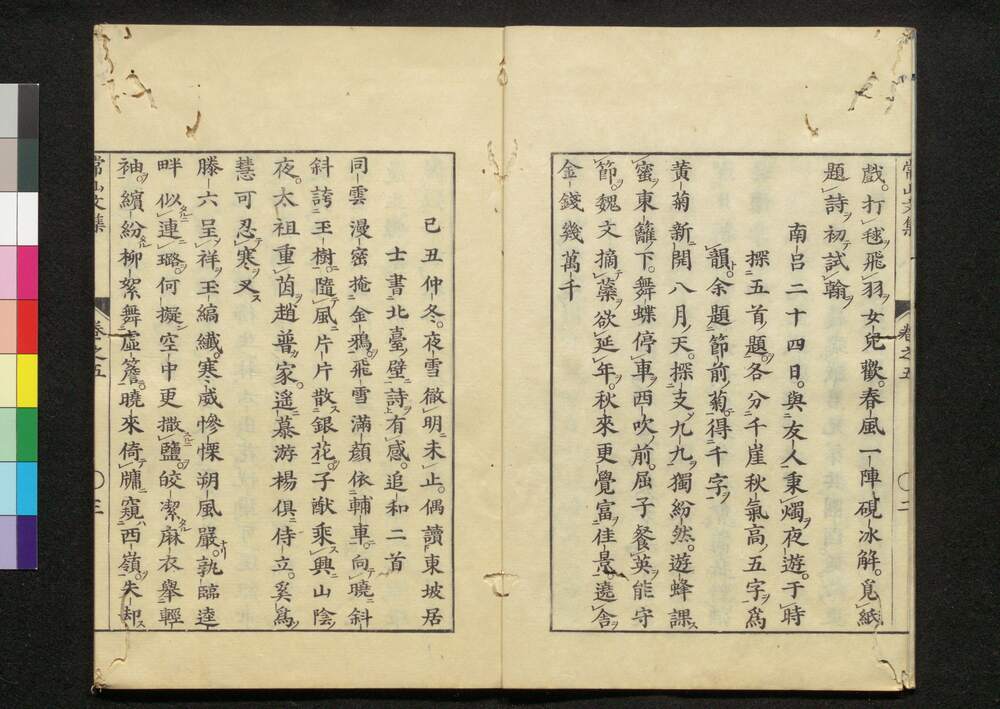 常山文集 卷之五 〇二
戲打毬飛羽女兒歡春風一陣硯冰解覓紙
題詩初試翰
南呂二十四日與友人秉燭夜遊于時
探五首題各分千崖秋氣高五字爲
韻余題節前菊得千字
黃菊新開八月天探支九九獨紛然遊蜂課
蜜東籬下舞蝶停車西吹前屈子餐英能守
節魏文摘藥欲延年秋來更覺富佳景遶舍
金錢幾萬千
己丑仲冬夜雪徹明未止偶讀東坡居
士書北臺壁詩有感追和二首
同雲漫密掩金鴉飛雪滿顏依輔車向曉斜
斜誇玉樹隨風片片散銀花子猷乘興山陰
夜太祖重茵趙普家遥慕游楊俱侍立奚爲
慧可忍寒叉
滕六呈祥玉縞纖寒威慘慄朔風嚴孰臨逵
畔似連璐何擬空中更撒鹽皎潔麻衣舉輕
袖繽紛柳絮舞虛簷曉來倚牖窺西嶺失却
常山文集 卷之五 〇三